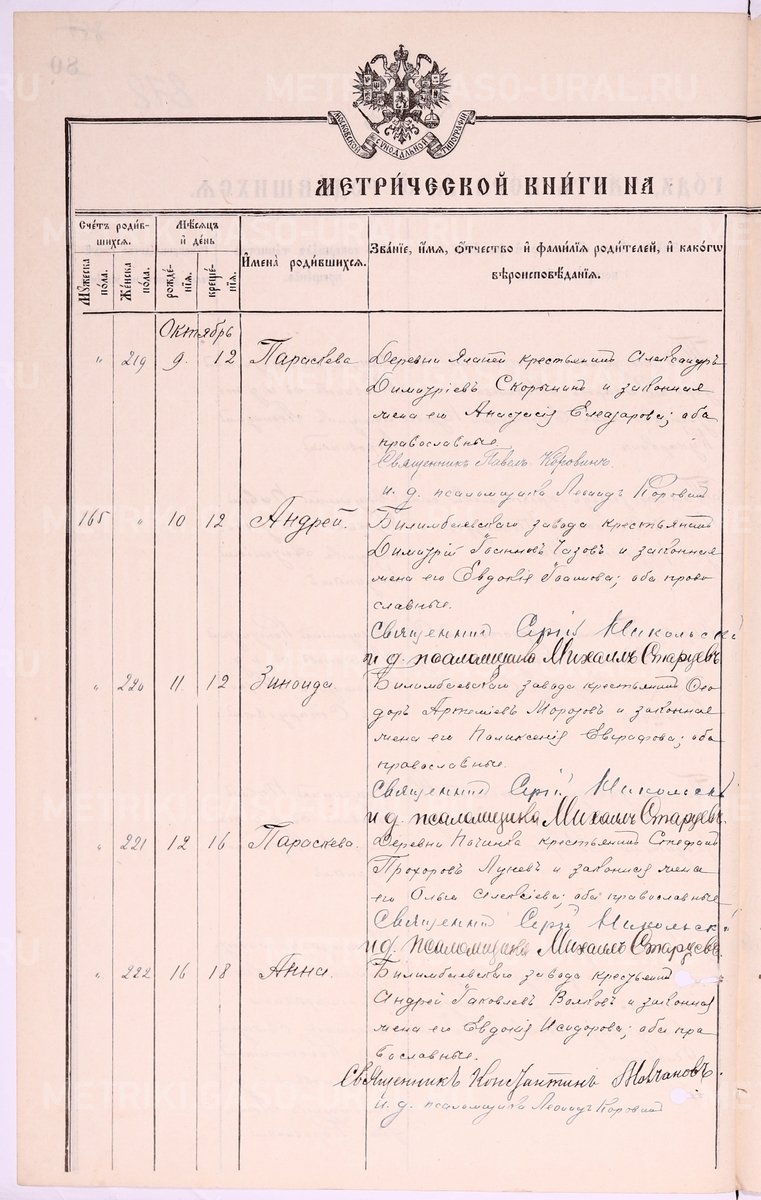 80
МОСКОВСКОЙ СѴНОДАЛЬНОЙ ТИПОГРАФІИ
МЕТРИ́ЧЕСКОЙ КНИ́ГИ НА
Сче́тъ роди́в-
шихся.
Мѣ́сяцъ
и҆ де́нь
И҆мена̀ роди́вшихся.
Зва́нїе, и҆́мя, ѻ҆́тчество и҆ фами́лїѧ роди́телей, и҆ како́гѡ
вѣроисповѣ́данїѧ.
Му́жеска
по́ла.
Же́нска
по́ла.
рожде́-
нїѧ.
креще́-
нїѧ.
Октябрь
" 219 9. 12 Параскева Деревни крестьянинъ Александръ
Димитріевъ Скорынинъ и законная
жена его Анастасія Елеазарова; оба
православные.
Священникъ Павелъ Коровинъ.
и. д. псаломщика Леонидъ Коровин
165 " 10 12 Андрей. Билимбаевскаго завода крестьянинъ
Димитрій Іоанновъ Чазовъ и законная
жена его Евдокія Іоаннова; оба право-
славные.
Священник Сергій Никольскі
и д. псаломщика Михаилъ Старцевъ
" 220 11. 12 Зинаида. Билимбаевскаго завода крестьянинъ Ѳео-
доръ Артеміевъ Морозовъ и законная
жена его Поликсенія Евграфова; оба
православные.
Священник Сергій Никольскі
и д. псаломщика Михаилъ Старцевъ.
" 221 12 16 Параскева. Деревни Починка крестьянинъ Стефанъ
Прохоровъ Лукевъ и законная жена
его Ольга Алексіева; оба православные
Священник Сергій Никольскі
и д. псаломщика Михаилъ Старцевъ.
" 222 16 18 Анна. Билимбаевскаго завода крестьянинъ
Андрей Іаковлевъ Волковъ и законная
жена его Евдокія Исидорова; оба пра-
вославные.
Священникъ Константинъ Молчановъ.
и. д. псаломщика Леонидъ Коровин